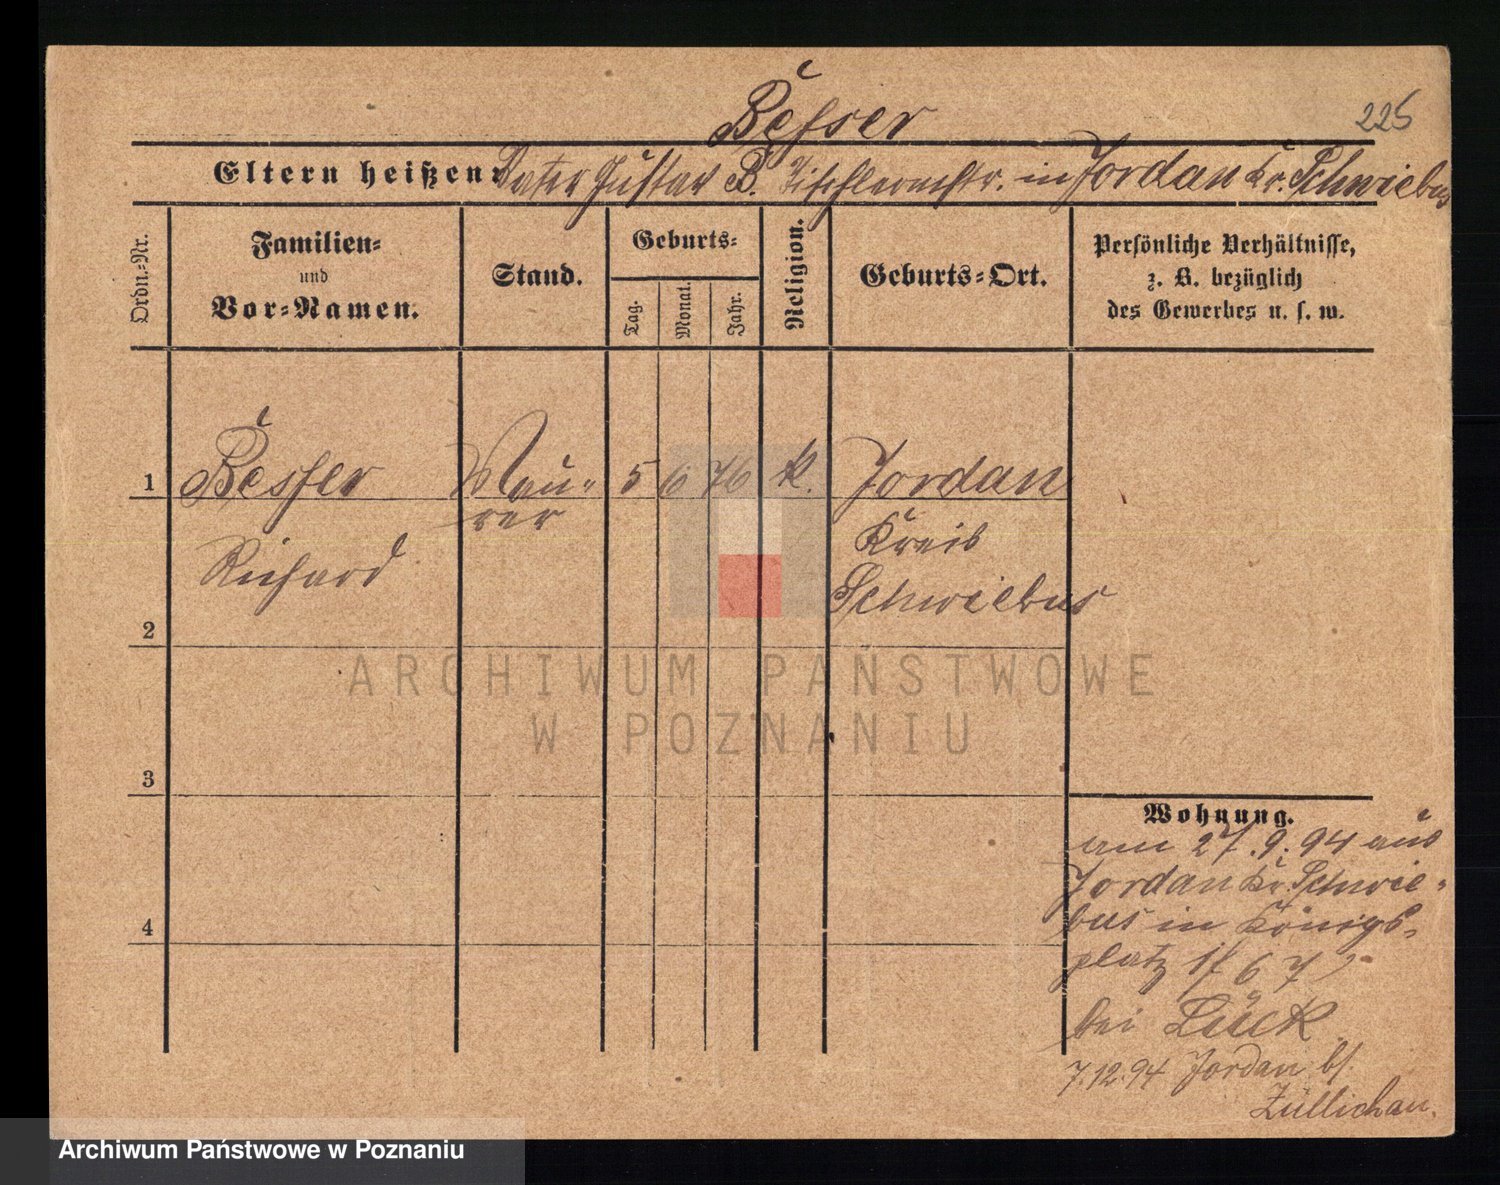 Besser
225
Eltern heißen: Vater Gustav B. Tischlermstr. in Jordan Kr. Schwiebus
Ordn.-Nr.
Familien-
und
Vor-Namen.
Stand.
Geburts-
Tag.
Monat.
Jahr.
Religion.
Geburts-Ort.
Persönliche Verhältnisse,
z. B. bezüglich
des Gewerbes u. s. w.
1
Besser
Richard
Mau-
rer
5
6
76
k.
Jordan
Kreis
Schwiebus
2
3
4
Wohnung.
am 27.9.94 aus
Jordan Kr. Schwie-
bus in Königs-
platz 6 7
bei Lück
7.12.94 Jordan b/
Züllichau.
ARCHIWUM PAŃSTWOWE
W POZNANIU
Archiwum Państwowe w Poznaniu